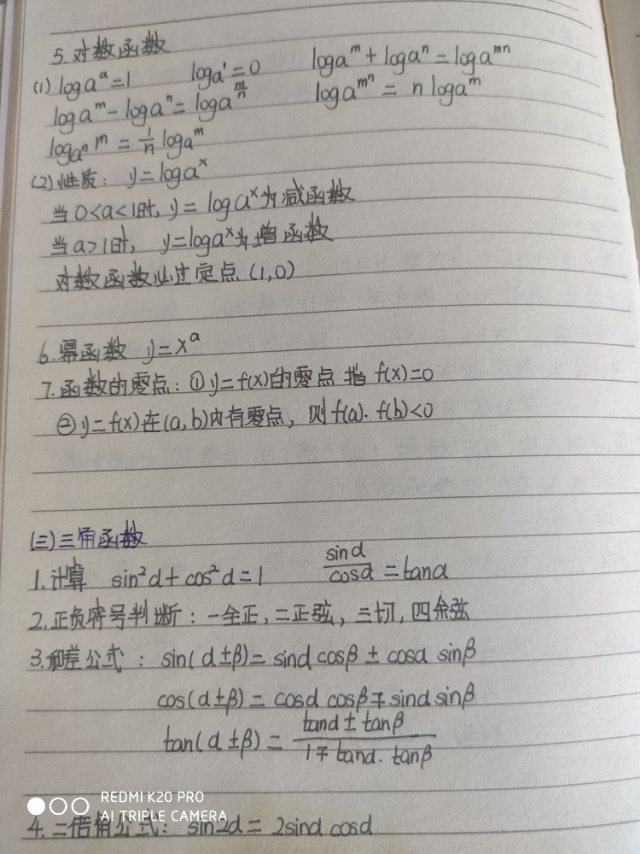 5.对数函数
(1) logaᵃ=1 loga¹=0 logaᵐ+logaⁿ=logaᵐⁿ
logaᵐ-logaⁿ=loga^(m/n) loga^(mⁿ) = n logaᵐ
log_(aⁿ) m = 1/n logaᵐ
(2)性质: y=logaˣ
当0<a<1时, y = logaˣ为减函数
当a>1时, y=logaˣ为增函数
对数函数必过定点(1,0)
6.幂函数 y=xᵃ
7.函数的零点:①y=f(x)的零点 指 f(x)=0
②y=f(x)在(a,b)内有零点, 则f(a)·f(b)<0
(三)三角函数
1.计算 sin²α+cos²α=1 sinα/cosα=tanα
2.正负符号判断:一全正,二正弦,三切,四余弦
3.和差公式: sin(α±β)=sinαcosβ±cosα sinβ
cos(α±β)=cosαcosβ∓sinαsinβ
tan(α±β)= (tanα±tanβ)/(1∓tanα·tanβ)
4.二倍角公式: sin2α= 2sinαcosα
REDMI K20 PRO
AI TRIPLE CAMERA